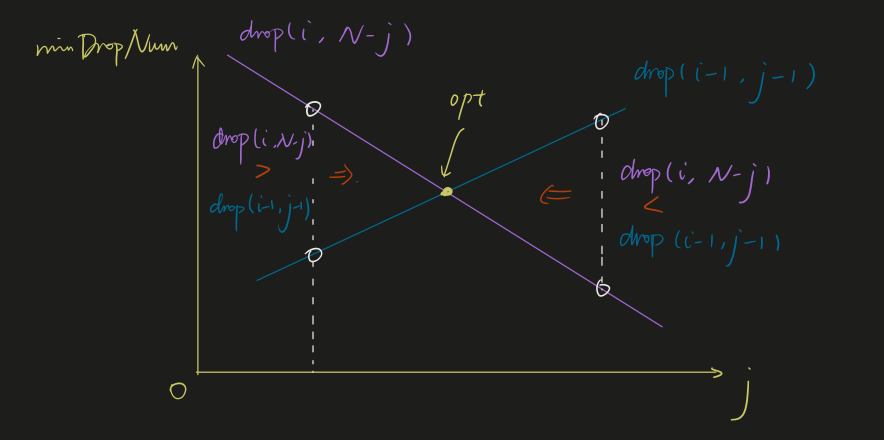 drop(i, N-j)
minDropNum
drop(i-1, j-1)
opt
drop(i,N-j)
>
drop(i-1,j-1)
⇒
⇐
drop(i, N-j)
<
drop(i-1,j-1)
0
j